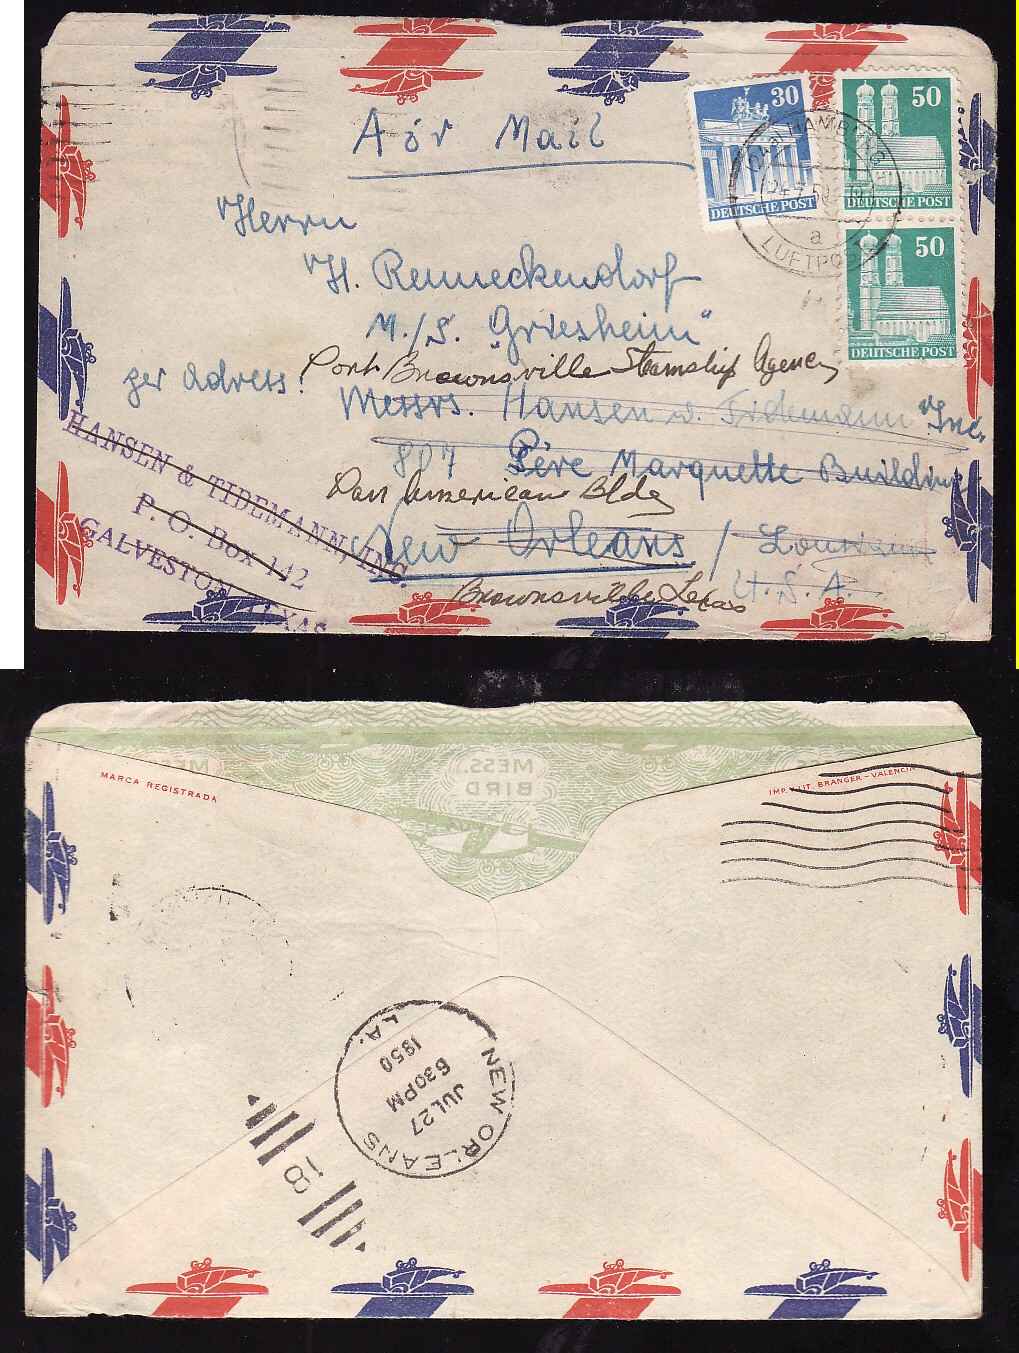 Air Mail
30
DEUTSCHE POST
50
DEUTSCHE POST
50
DEUTSCHE POST
HAMBURG
24.7.50
a
LUFTPOST
Herrn
H. Renneckendorf
M./S. "Griesheim"
per Adress:
Port Brownsville Steamship Agency
Messrs. Hansen & Tidemann Inc.
807 Père Marquette Building
Pan American Bldg
New Orleans / Louisiana
Brownsville Texas
U.S.A.
HANSEN & TIDEMANN, INC.
P. O. BOX 142
GALVESTON, TEXAS
MESS.
MESS.
BIRD
MARCA REGISTRADA
IMP. Y LIT. BRANGER - VALENCIA
NEW ORLEANS
LA.
JUL 27
630PM
1950
18